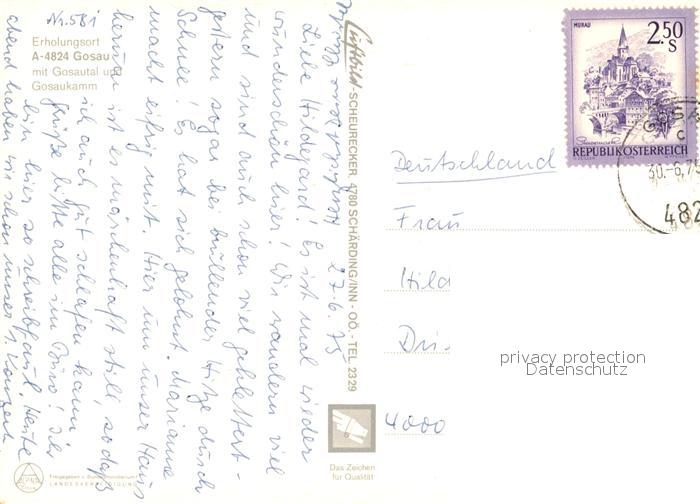 Nr. 581
Erholungsort
A-4824 Gosau
mit Gosautal und
Gosaukamm
27.6.75
Liebe Hildegard! Es ist mal wieder
wunderschön hier! Wir wandern viel
und sind auch schon viel geklettert -
gestern sogar bei brüllender Hitze durch
Schnee! Es hat sich gelohnt. Marianne
macht eifrig mit. Hier um unser Haus
herum ist es märchenhaft still, so daß
ich auch gut schlafen kann.
Grüße bitte alle im Büro! Ich
bin hier so schreibfaul. Heute
abend haben wir schon unser 1. Konzert
Luftbild SCHEURECKER, 4780 SCHÄRDING/INN - OÖ. - TEL. 2329
MURAU
2.50
S
REPUBLIK ÖSTERREICH
30.-6.75
482
Deutschland
Frau
Hild
Dü.
4000
privacy protection
Datenschutz
Das Zeichen
für Qualität
Freigegeben v. Bundesministerium f.
LANDESVERTEIDIGUNG